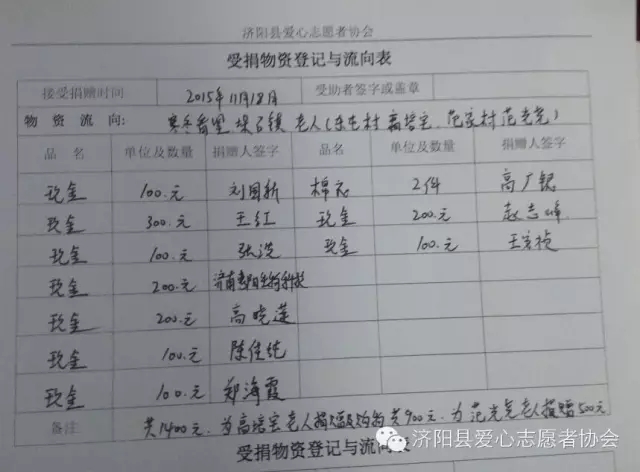 济阳县爱心志愿者协会
受捐物资登记与流向表
接受捐赠时间 2015年11月18日 受助者签字或盖章
物资流向: 寒冬看望垛石镇老人(东屯村高培宝、范家村范光尧)
品名 单位及数量 捐赠人签字 品名 单位及数量 捐赠人签字
现金 100.元 刘国新 棉衣 2件 高广银
现金 300.元 王红 现金 200.元 赵志峰
现金 100.元 张浩 现金 100.元
现金 200.元 济南
现金 200.元 高晓莲
现金 100.元 陈佳纯
现金 100.元 郑海霞
备注 共1400元.为高培宝老人捐赠及购物共900元.为范光尧老人捐赠500元
济阳县爱心志愿者协会
受捐物资登记与流向表